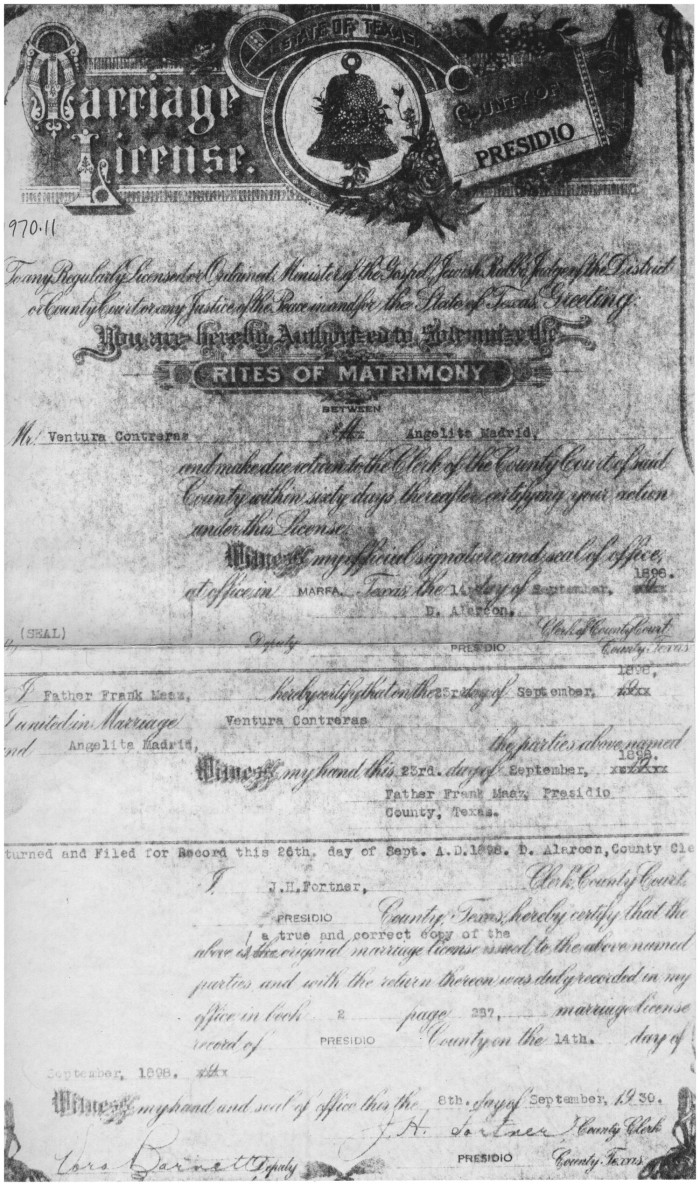 STATE OF TEXAS.
Marriage
License.
COUNTY OF
PRESIDIO
970.11
To any Regularly Licensed or Ordained Minister of the Gospel, Jewish Rabbi, Judge of the District
or County Court or any Justice of the Peace in and for the State of Texas, Greeting:
You are hereby Authorized to Solemnize the
RITES OF MATRIMONY
BETWEEN
Mr. Ventura Contreras Angelita Madrid,
and make due return to the Clerk of the County Court of said
County within sixty days thereafter certifying your action
under this License.
Witness my official signature and seal of office,
1898.
at office in MARFA. Texas, the 14 day of September.
D. Alarcon.
(SEAL) Clerk of County Court
Deputy PRESIDIO County, Texas
1898,
I Father Frank Maaz, hereby certify that on the 23rd day of September,
I united in Marriage Ventura Contreras
nd Angelita Madrid, the parties above named
1898.
Witness my hand this 23rd. day of September,
Father Frank Maaz, Presidio
County, Texas.
turned and Filed for Record this 26th. day of Sept. A.D.1898. D. Alarcon,County Cle
I J.H.Fortner, Clerk, County Court,
PRESIDIO County, Texas, hereby certify that the
a true and correct copy of the
above is the original marriage license issued to the above named
parties and with the return thereon was duly recorded in my
office in book 2 page 237, marriage license
record of PRESIDIO County on the 14th. day of
September, 1898.
Witness my hand and seal of office this the 8th. day of September, 1930.
J. H. Fortner County Clerk
Barnett Deputy PRESIDIO County, Texas